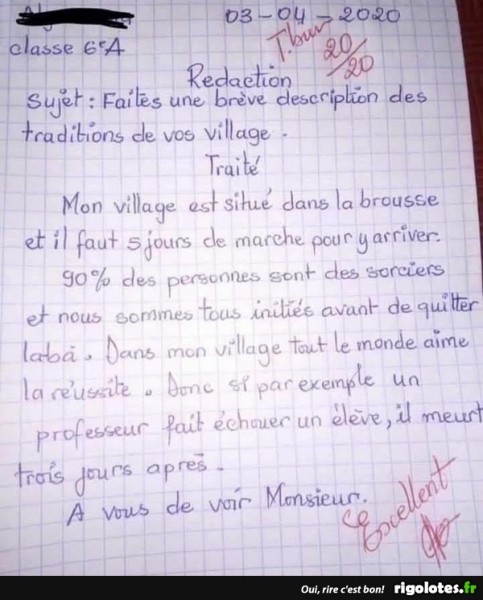 03-04-2020
classe 6eA
T.bien
20/20
Redaction
Sujet: Faites une brève description des
traditions de vos village.
Traité
Mon village est situé dans la brousse
et il faut 5 jours de marche pour y arriver.
90% des personnes sont des sorciers
et nous sommes tous initiés avant de quitter
labá. Dans mon village tout le monde aime
la réussite. Donc si par exemple un
professeur fait échouer un élève, il meurt
trois jours aprés.
A vous de voir Monsieur.
Excellent
Oui, rire c'est bon! rigolotes.fr